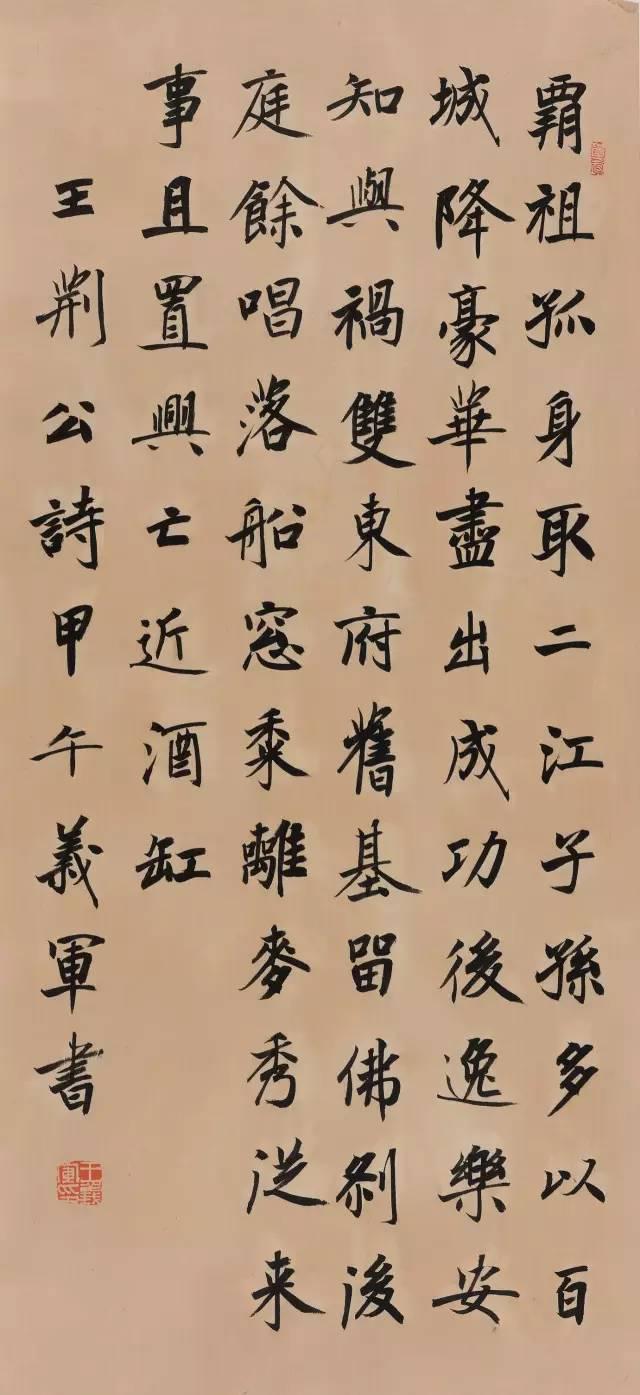 覇祖孤身取二江子孫多以百
城降豪華盡出成功後逸樂安
知與禍雙東府舊基留佛刹後
庭餘唱落船窓黍離麥秀従来
事且置興亡近酒缸
王荆公詩甲午義軍書